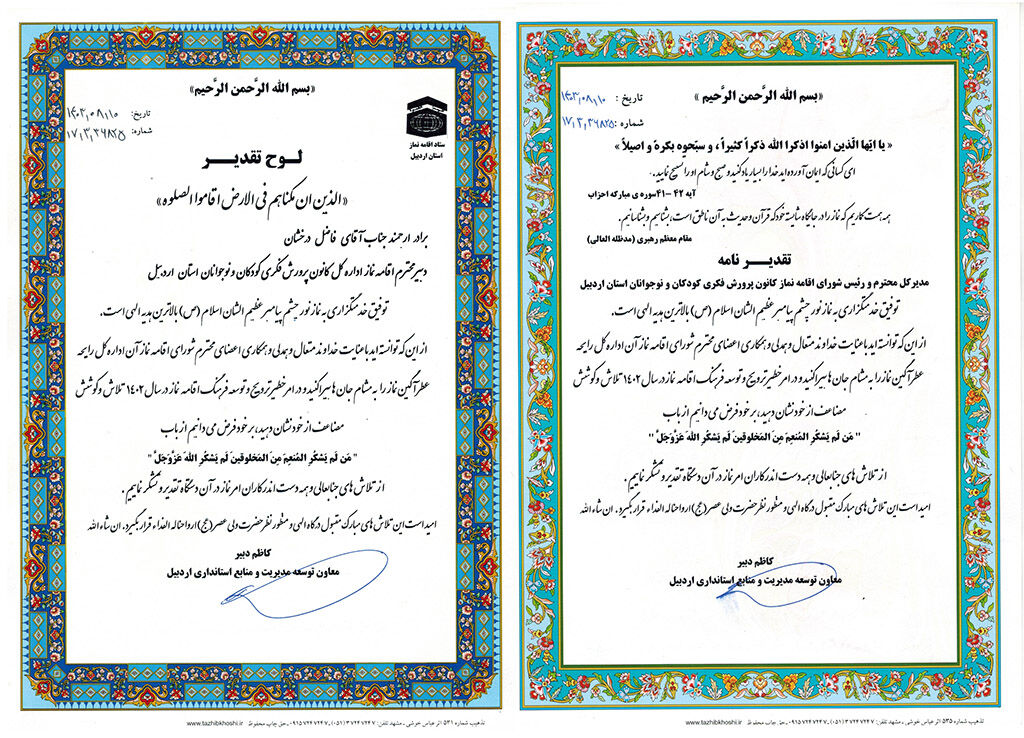 «بسم الله الرَّحمن الرَّحیم»
تاریخ : ۱۴۰۳٫۰۸٫۱۰
شماره : ۱۷٫۳٫۳۶۸۲۵
« یا ایّها الَّذین امنوا اذکرا الله ذکراً کثیراً ، و سبّحوه بکرهً و اصیلاً »
ای کسانی که ایمان آورده اید خدا را بسیار یاد کنید و صبح و شام او را تسبیح نمایید.
آیه ۴۲ –۴۱سوره ی مبارکه احزاب
همه همت کاریم که نماز را در جایگاه شایسته خود که قرآن و حدیث به آن ناطق است، بشناسیم و بشناسانیم.
مقام معظم رهبری (مدظله العالی)
تقدیر نامه
مدیرکل محترم و رئیس شورای اقامه نماز کانون پرورش فکری کودکان و نوجوانان استان اردبیل
توفیق خدمتگزاری به نماز نور چشم پیامبر عظیم الشان اسلام (ص) بالاترین هدیه الهی است.
از این که توانسته اید با عنایت خداوند متعال و همدلی و همکاری اعضای محترم شورای اقامه نماز آن اداره کل رایحه
عطرآگین نماز را به مشام جان ها سراکنید و در امر خطیر ترویج و توسعه فرهنگ اقامه نماز در سال ۱۴۰۲ تلاش و کوشش
مضاعف از خود نشان دهید، بر خود فرض می دانیم از باب
" مَن لَم یَشکُرِ المُنعِمَ مِنَ المَخلوقینَ لَم یَشکُرِ اللهَ عَزَّوَجَلَّ "
از تلاش های جنابعالی و همه دست اندرکاران امر نماز در آن دستگاه تقدیر و تشکر نماییم.
امید است این تلاش های مبارک مقبول درگاه الهی و منظور نظر حضرت ولی عصر (عج) ارواحنا له الفداء قرار بگیرد. ان شاء الله
کاظم دبیر
معاون توسعه مدیریت و منابع استانداری اردبیل
تذهیب شماره ۵۳۵ اثر عباس خوشی ، مشهد تلفن: ۳۷۲۴۷۲۴۷ (۰۵۱) ـ ۰۹۱۵۷۲۴۷۲۴۷ ـ حق چاپ محفوظ www.tazhibkhoshi.ir
«بسم الله الرَّحمن الرَّحیم»
تاریخ: ۱۴۰۳٫۰۸٫۱۰
شماره: ۱۷٫۳٫۳۶۸۲۵
ستاد اقامه نماز
استان اردبیل
لوح تقدیر
«الذین ان مکناهم فی الارض اقاموا الصلوه»
برادر ارجمند جناب آقای فاضل درخشان
دبیر محترم اقامه نماز اداره کل کانون پرورش فکری کودکان و نوجوانان استان اردبیل
توفیق خدمتگزاری به نماز نور چشم پیامبر عظیم الشان اسلام (ص) بالاترین هدیه الهی است.
از این که توانسته اید با عنایت خداوند متعال و همدلی و همکاری اعضای محترم شورای اقامه نماز آن اداره کل رایحه
عطرآگین نماز را به مشام جان ها سراکنید و در امر خطیر ترویج و توسعه فرهنگ اقامه نماز در سال ۱۴۰۲ تلاش و کوشش
مضاعف از خود نشان دهید، بر خود فرض می دانیم از باب
" مَن لَم یَشکُرِ المُنعِمَ مِنَ المَخلوقینَ لَم یَشکُرِ اللهَ عَزَّوَجَلَّ "
از تلاش های جنابعالی و همه دست اندرکاران امر نماز در آن دستگاه تقدیر و تشکر نماییم.
امید است این تلاش های مبارک مقبول درگاه الهی و منظور نظر حضرت ولی عصر (عج) ارواحنا له الفداء قرار بگیرد. ان شاء الله
کاظم دبیر
معاون توسعه مدیریت و منابع استانداری اردبیل
تذهیب شماره ۵۳۱ اثر عباس خوشی ، مشهد تلفن: ۳۷۲۴۷۲۴۷ (۰۵۱) ـ ۰۹۱۵۷۲۴۷۲۴۷ ـ حق چاپ محفوظ www.tazhibkhoshi.ir